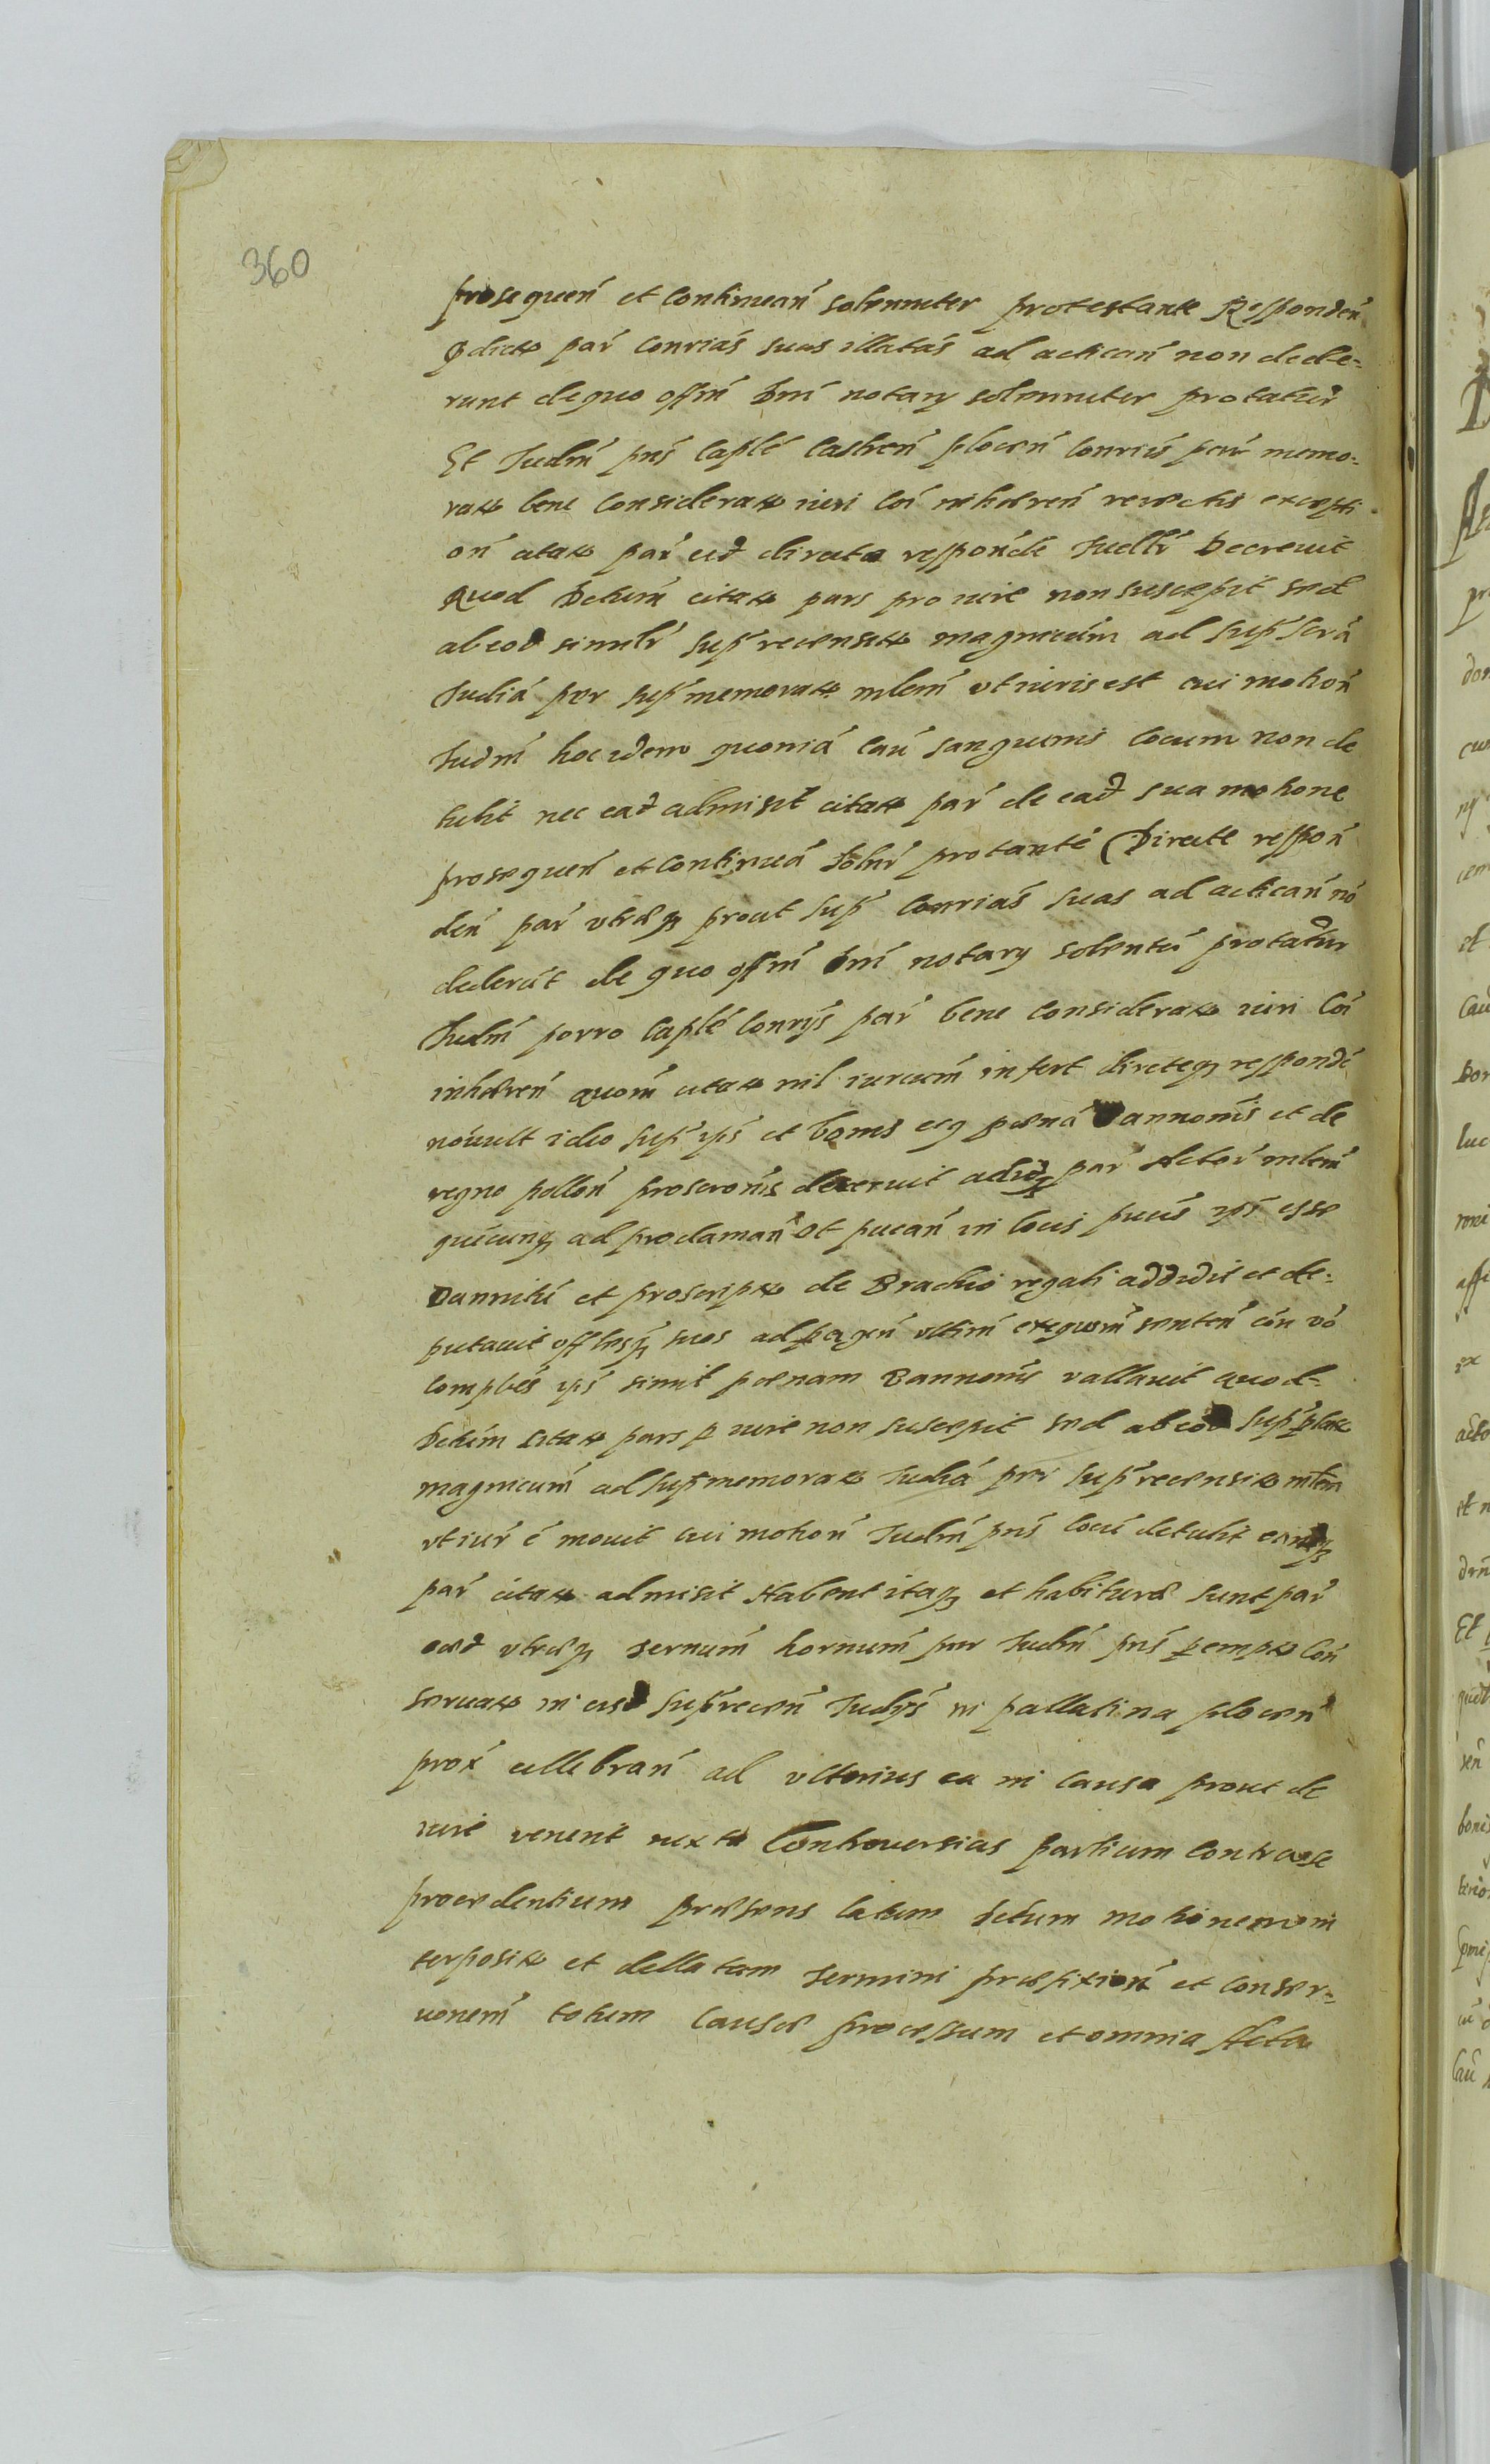 360
prosequeń et Continueań solenniter protestante Respondeń
pdictæ pár Conriás suas illatás ad acticań non dede-
runt de quo offm dni notarÿ solenniter protatur
Et Iudm pns Caplé Castreń ploceń Conriis pár memo-
ratæ bene Consideratæ iuri Coi inhæreń reiectis excepti
oń citatæ pár eid directe respondé Iudlr Decreuit
Quod Dctum citatæ pars pro iure non suscæpit sed
ab eod simulr sup recensitæ magnicum ad sup scrá
Iudiá per sup memoratæ mlem vt iuris est cui motioń
Iudm hoc idem quoniá Cau sanguinis Locum non de
tulit nec ead admisit citatæ pár de ead sua motione
prosequeń et Continuá Solnr protanté Directe respoń
deń pár vtræq prout sup Conriás suas ad acticań nó
dederút de quo offm dni notarÿ solentr protatur
Iudm porro Caplé Conrÿs pár bene Consideratæ iuri Coi
inhæreń quom citatæ nil iurium infert directeq respondé
nó vult ideo sup ips et bonis eiq pæná Bannonis et de
regno polloń proscronis decreuit adiq pár Actor mlem
quicunq ad proclamań et pucań in locis pucis ips esse
Bannití et proscriptæ de Brachio regali addidit et de-
putauit offlesq suos ad pageń vltim exequm senteń Coń vó
Complés ips simil pænam Bannonis vallauit quod
Dctum citatæ pars p iure non suscepit sed ab eod sup platæ
magnicum ad sup memoratæ Iudiá per sup recensitæ mlem
vt iur é mouit cui motioń Iudm pns locú detulit eamq
pár citatæ admisit Habent itaq et habituræ sunt pár
eæd vtræq Termum hornum per Iudm pns peremptæ Coń
seruatæ in eisd sup receń Iudÿs in pallatina ploceń
prox cellebrań ad vlterius ea in Causa prout de
iure venerit iuxta Controuersias partium Contra se
procedentium præsens latum dctum motionem in
terpositæ et dellatam Termini præfixioń et Conser-
uonem totum Causæ processum et omnia Acta